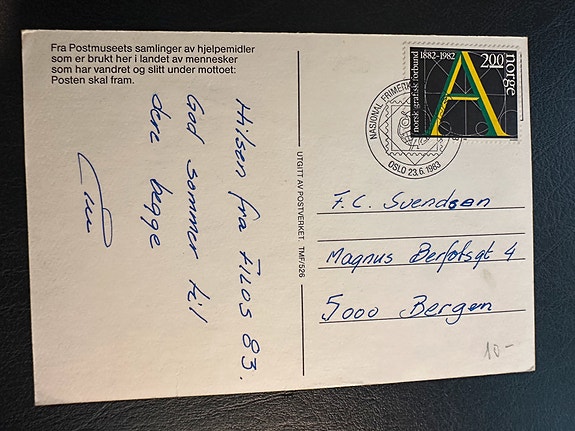 Fra Postmuseets samlinger av hjelpemidler
som er brukt her i landet av mennesker
som har vandret og slitt under mottoet:
Posten skal fram.
Hilsen fra FILOS 83.
God sommer til
dere begge
UTGITT AV POSTVERKET TMF/526
norsk grafisk forbund
1882-1982
200
norge
A
NASJONAL FRIMERKE
OSLO 23.6.1983
F.C. Svendsen
Magnus Berfotsgt 4
5000 Bergen
10-